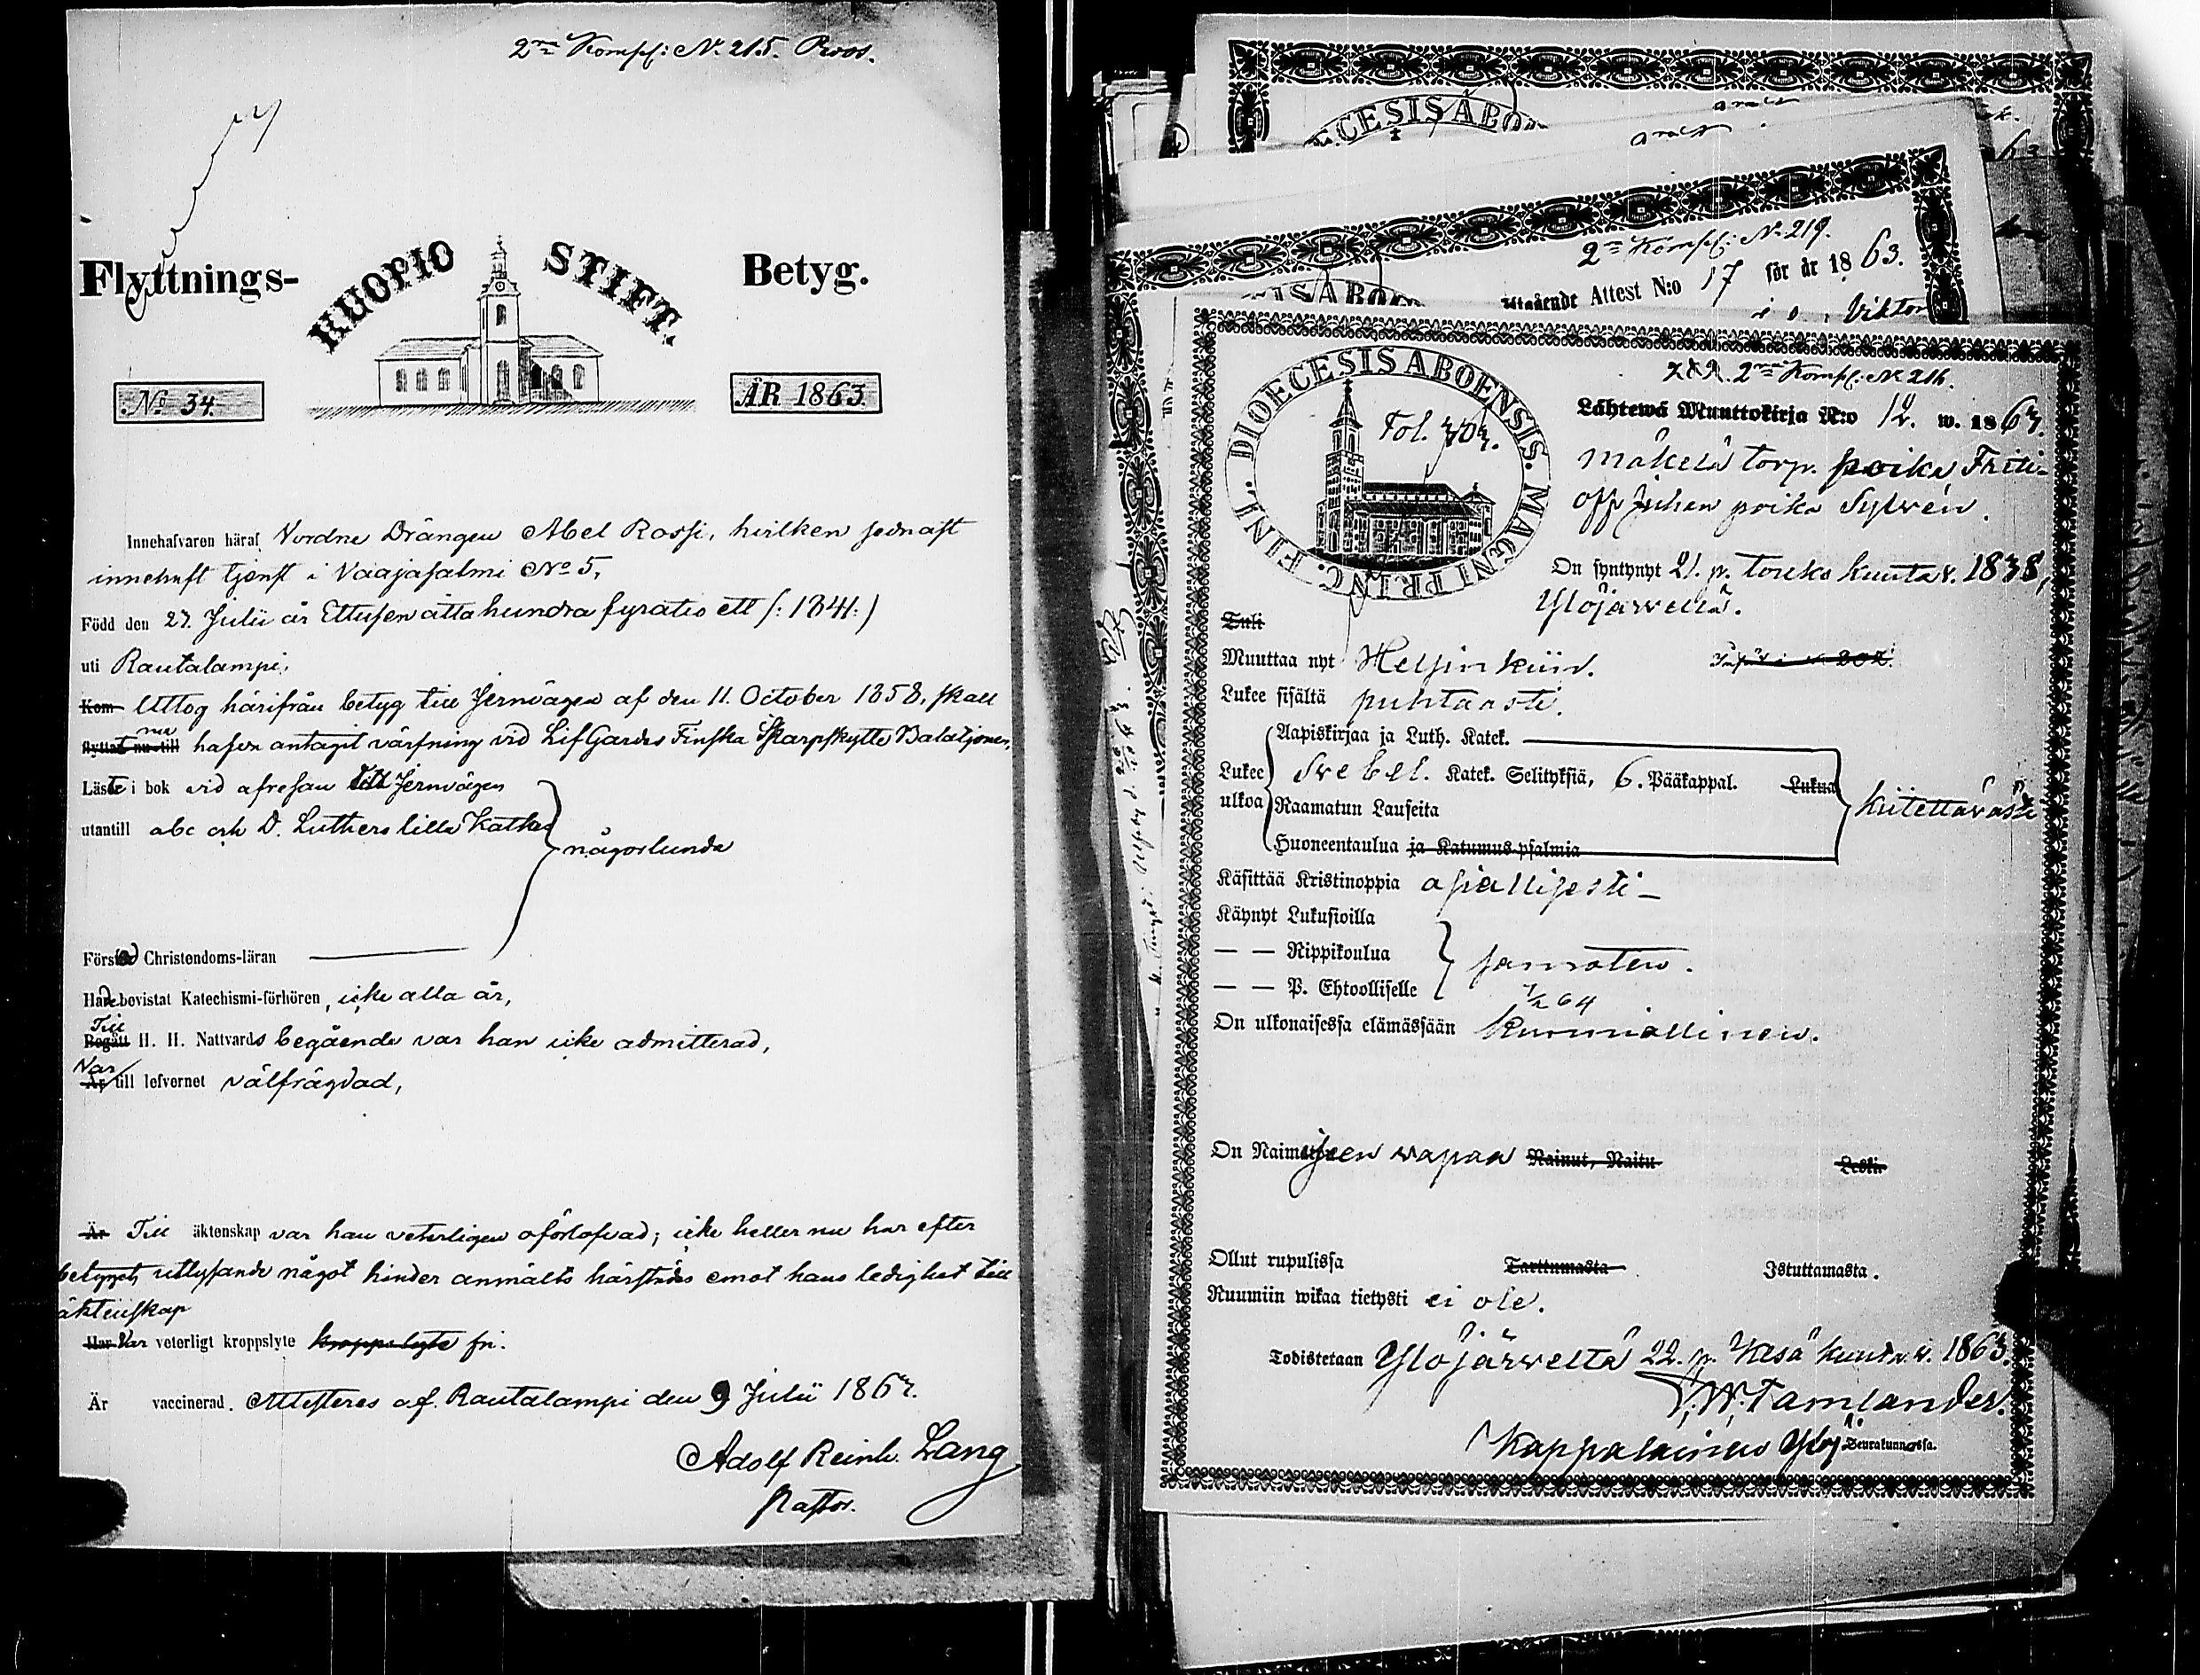 2ra Komp: No 215. Roos.
Flyttnings- KUOPIO STIFT. Betyg.
No 34. ÅR 1863.
Innehafvaren häraf Vordne Drängen Abel Rossi, hvilken sednast
innehaft tjenst i Vaajasalmi No 5,
Född den 27. Julii år Ettusen åtta hundra fyratio ett (: 1841 :)
uti Rautalampi,
Kom Uttog härifrån betyg till Jernvägen af den 11. October 1858, skall
flyttat nu till nu hafva antagit värfning vid LifGardes Finska Skarpskytte Bataljonen,
Läste i bok vid afresan till Jernvägen
utantill abc och D. Luthers lilla Katkes
någorlunda
Förstod Christendoms-läran
Hade bevistat Katechismi-förhören, icke alla år,
Till
Begått H. H. Nattvards begående var han icke admitterad,
Var
Är till lefvernet välfrägdad,
Är Till äktenskap var han veterligen oförlofvad; icke heller nu har efter
betygets utlysande något hinder anmälts härstädes emot hans ledighet till
äktenskap
Har Var veterligt kroppslyte kroppslyte fri.
Är vaccinerad. Attesteras af. Rautalampi den 9 Julii 1863.
Adolf Reinh. Lang
Pastor.
DIOECESIS ABO
2ra Komp: No 219.
Utgående Attest N:o 17 för år 1863.
Viktor
2ra Komp: No 216.
DIOECESIS ABOENSIS. MAGNI PRINC. FINL.
Fol. 303.
Lähtewä Muuttokirja N:o 12. w. 1863.
Mäkelä torp. poika, Friti-
off Juhan poika Sylvén.
On syntynyt 21. p. touko kuuta v. 1838,
Ylöjärvellä.
Tuli
Muuttaa nyt Helsinkiin.
Lukee sisältä puhtaasti.
Aapiskirjaa ja Luth. Katek.
Lukee ulkoa Svebel. Katek. Selityksiä, 6. Pääkappal. Lukua
Raamatun Lauseita
kiitettävästi
Huoneentaulua ja Katumus-psalmia
Käsittää Kristinoppia asiallisesti
Käynyt Lukusioilla
— — Rippikoulua
samaten.
— — P. Ehtoolliselle
On ulkonaisessa elämässään kunniallinen.
On Naimiseen vapaa Nainut, Naitu Leski
Ollut rupulissa Tarttumasta Istuttamasta.
Ruumiin wikaa tietysti ei ole.
Todistetaan Ylöjärveltä 22. p. Kesä kuuta v. 1863.
F. W. Tamlander.
Kappalainen Ylöj Seurakunnassa.